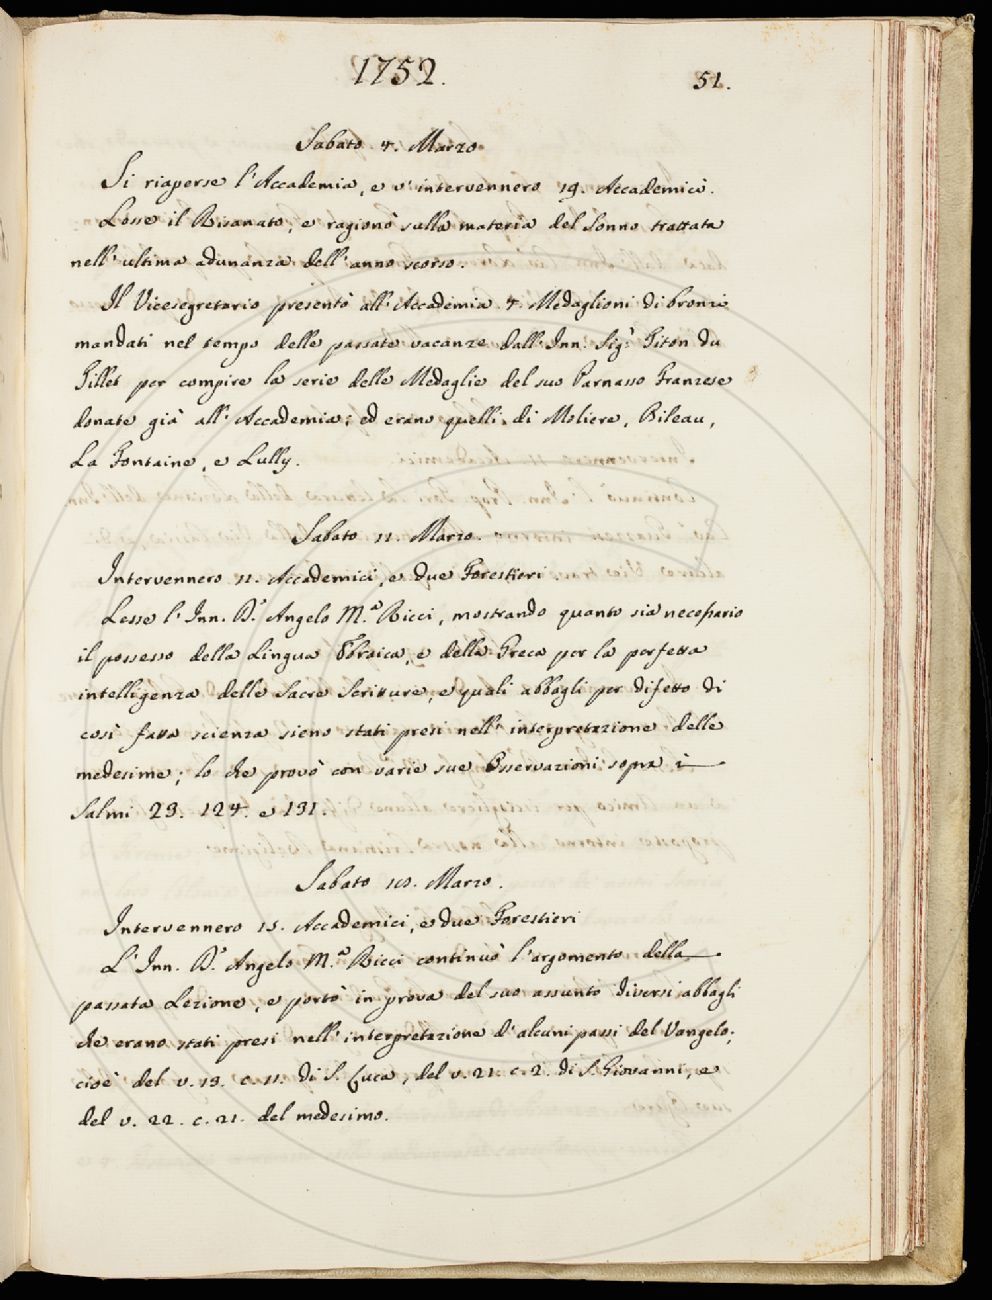 1752.
51.
Sabato 4. Marzo
Si riaperse l'Accademia, e v'intervennero 19. Accademici.
Lesse il Bisanato, e ragionò sulla materia del Sonno trattata
nell'ultima adunanza dell'anno scorso.
Il Vicesegretario presentò all'Accademia 4. Medaglioni di bronzi
mandati nel tempo delle passate vacanze dall'Inn. Sig.r Titon du
Tillet per compire la serie delle Medaglie del suo Parnasso Franzese
donate già all'Accademia; ed erano quelli di Moliere, Bileau,
La Fontaine, e Lully.
Sabato 11. Marzo.
Intervennero 11. Accademici, e due Forestieri.
Lesse l'Inn. D.r Angelo M.a Ricci, mostrando quanto sia necessario
il possesso della Lingua Ebraica, e della Greca per la perfetta
intelligenza delle Sacre Scritture, e quali abbagli per difetto di
così fatta scienza sieno stati presi nell'interpretazione delle
medesime; lo che provò con varie sue Osservazioni sopra i
Salmi 23. 124. e 131.
Sabato 18. Marzo.
Intervennero 15. Accademici, e due Forestieri
L'Inn. D.r Angelo M.a Ricci continuò l'argomento della
passata Lezione, e portò in prova del suo assunto diversi abbagli
che erano stati presi nell'interpretazione d'alcuni passi del Vangelo;
cioè del v. 13. c. 11. di S. Luca, del v. 21. c. 2. di S. Giovanni, e
del v. 22. c. 21. del medesimo.